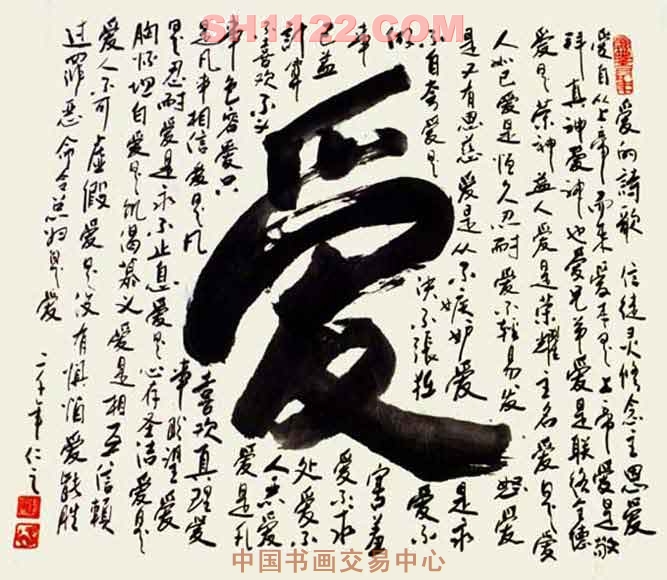 SH1122.COM
爱的詩歌 信徒灵修念主恩爱
爱自从上帝而来爱本是上帝爱是敬
拜真神爱神也爱兄弟爱是联络全德
爱是荣神益人爱是荣耀主名爱是爱
人如己爱是恒久忍耐爱不轻易发怒爱
是又有恩慈爱是从不嫉妒爱是求
不自夸爱是决不張狂爱不
做害羞
事爱不求
己益处爱不
計算人恶爱
不喜欢不义爱是凡
事包容爱只喜欢真理爱
是凡事相信爱是凡事盼望爱
是忍耐爱是永不止息爱是心存圣洁爱是
胸怀坦白爱是饥渴慕义爱是相互信賴
爱人不可虚假爱是没有惧怕爱能胜
过罪恶命令总归是爱
二千年仁之
爱
中国书画交易中心